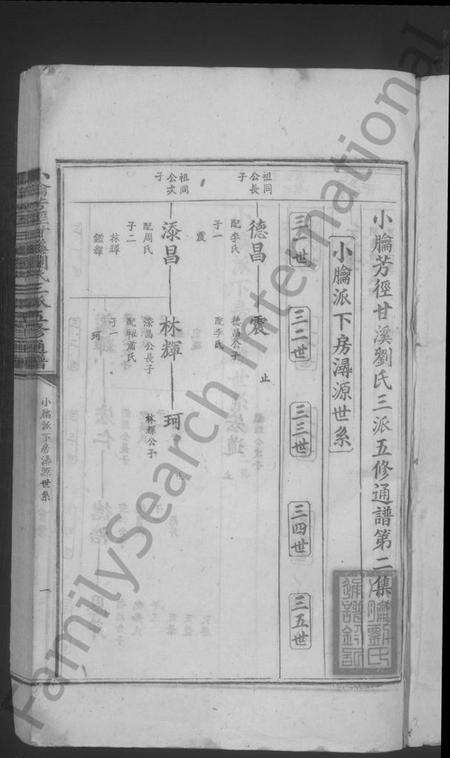 小腀芳徑甘溪劉氏三派五修通譜第二集
小腀派下房潯源世系
三一世
三二世
三三世
三四世
三五世
祖同公長子
德昌
配李氏
子一
震
震
德昌公子
配李氏
止
祖同公次子
添昌
配周氏
子二
林輝
鑑輝
林輝
添昌公長子
配蕭氏
子一
珂
珂
林輝公子
小腀派下房潯源世系
一
FamilySearch International